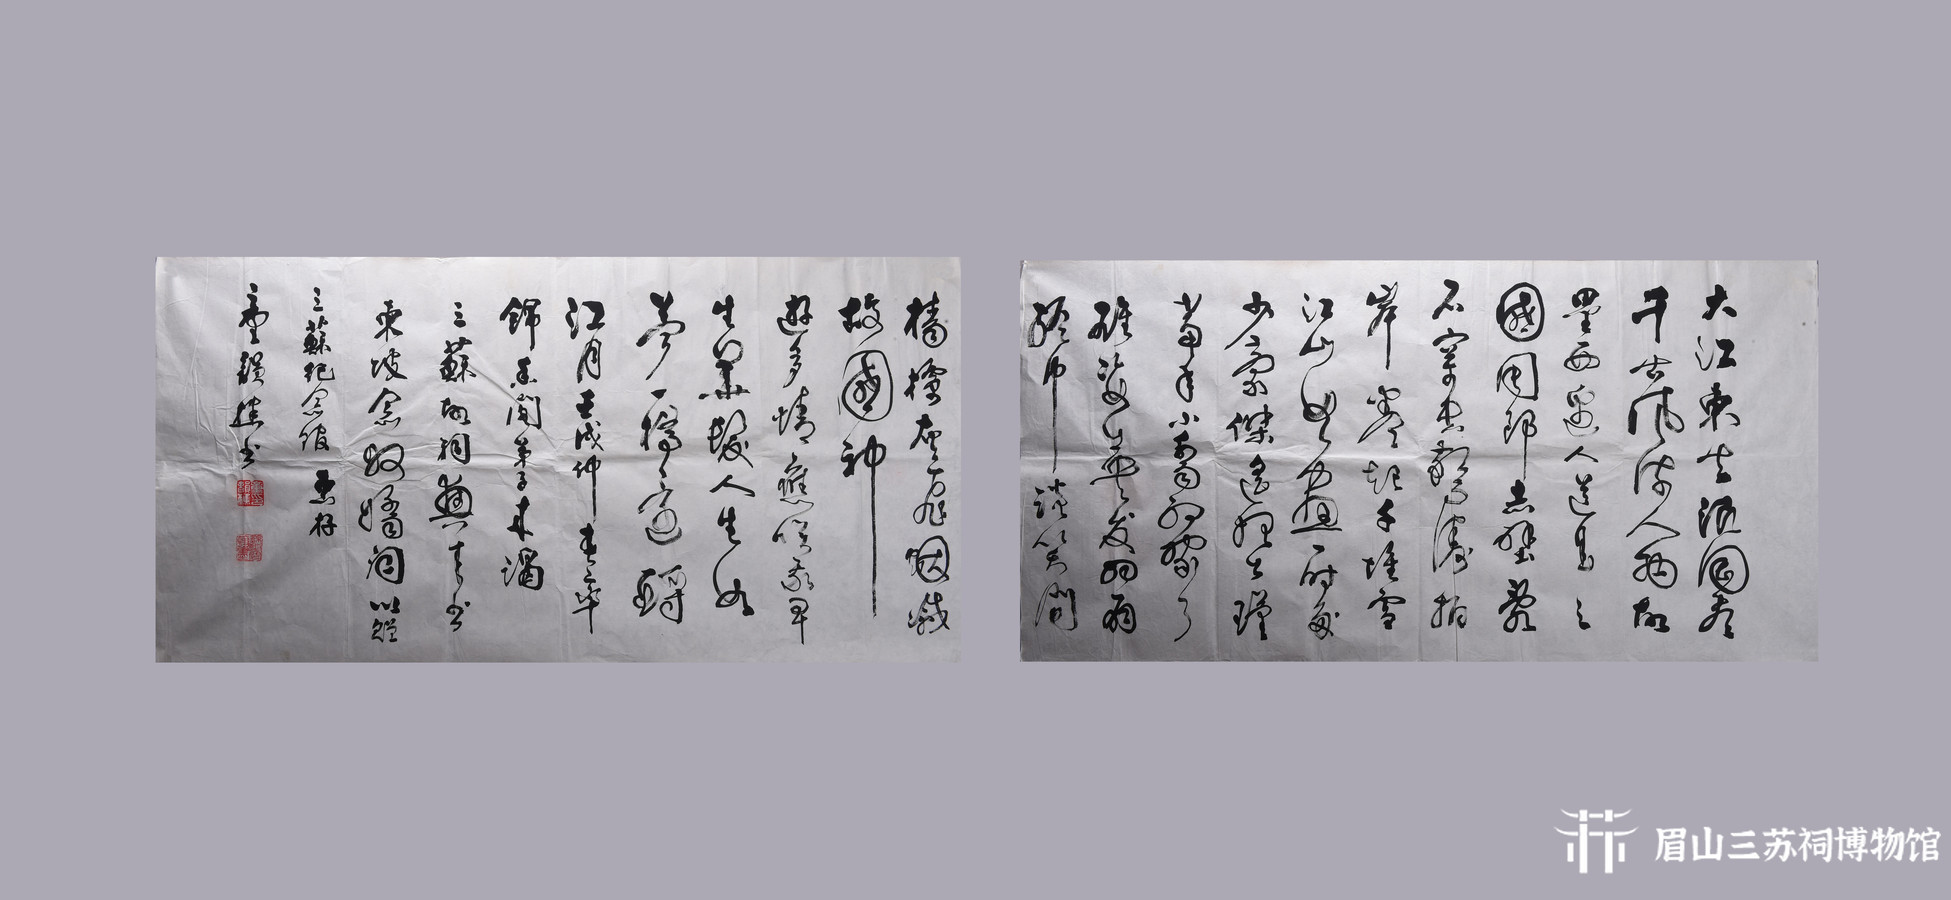 大江東去浪淘盡
千古風流人物故
壘西邊人道是三
國周郎赤壁亂
石穿空驚濤拍
岸卷起千堆雪
江山如畫一時多
少豪傑遙想公瑾
當年小喬初嫁了
雄姿英發羽扇
綸巾談笑間
檣櫓灰飛烟滅
故國神
遊多情應笑我早
生華髮人生如
夢一樽還酹
江月壬戌仲春率
錦閣弟子來謁
三蘇故祠興書
東坡念奴嬌詞以贈
三蘇紀念館惠存
書
眉山三苏祠博物馆